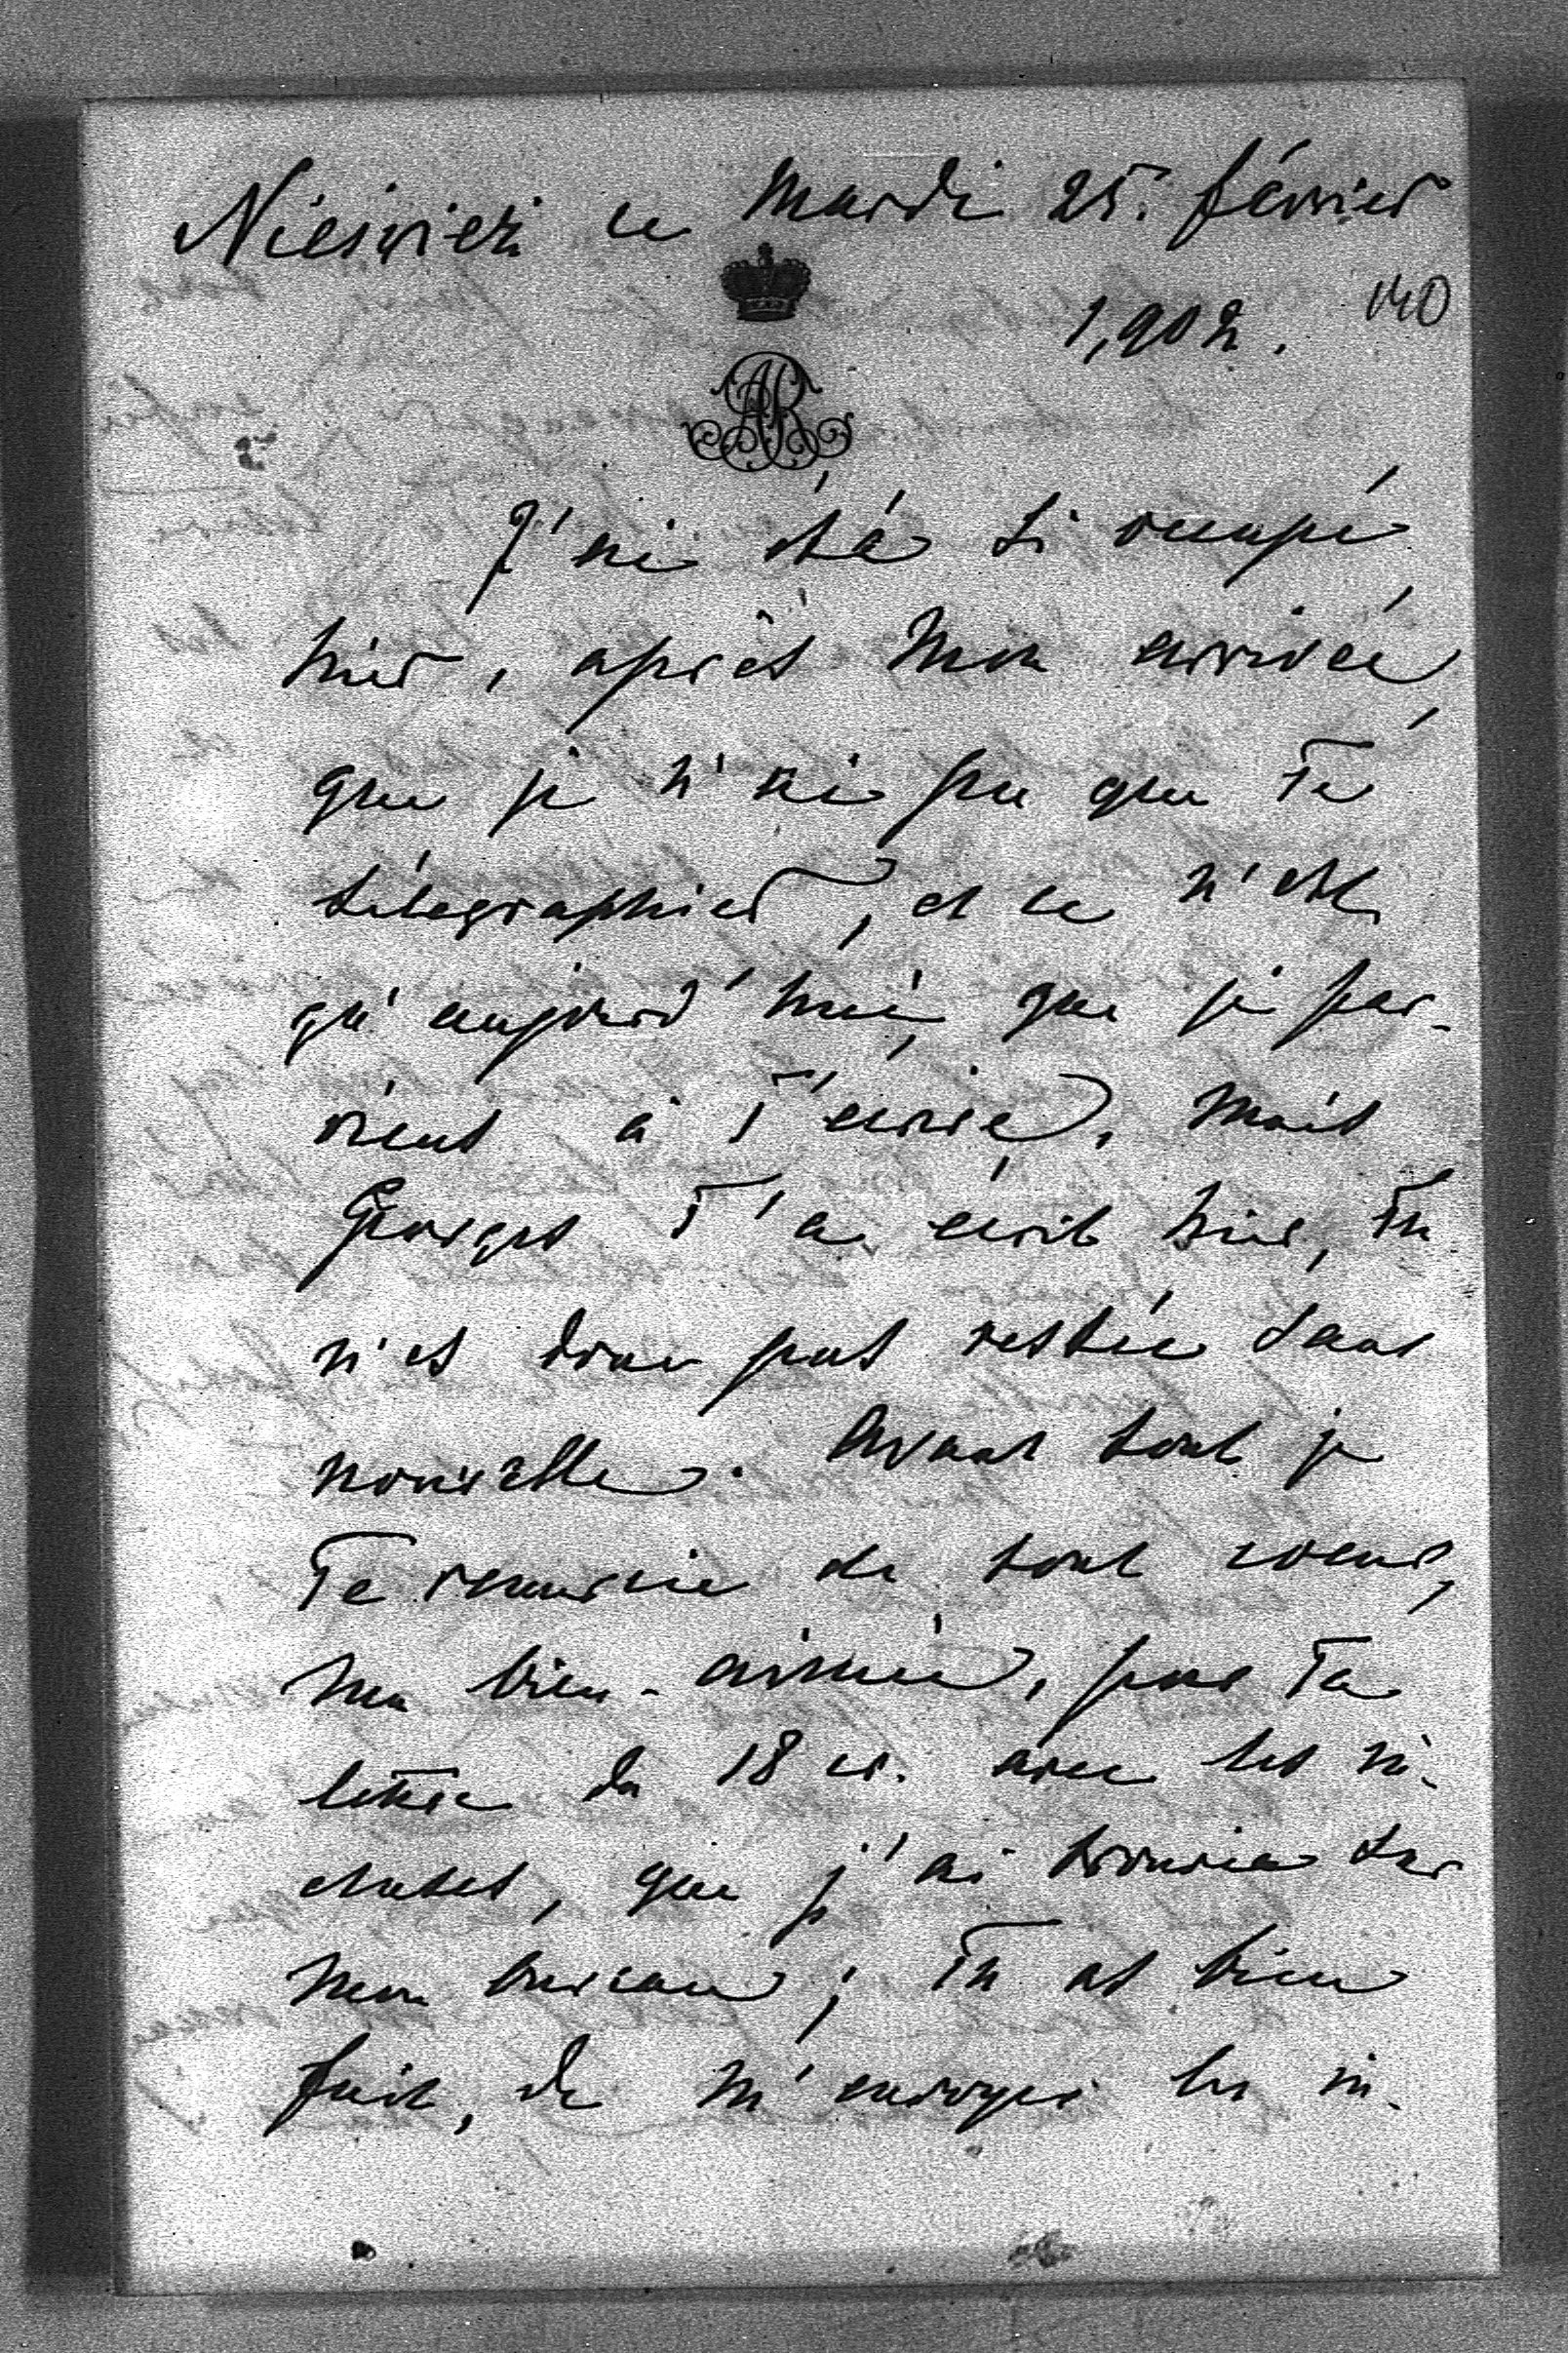 Nieśwież ce Mardi 25. février
1,902.
140
AR
J'ai été si occupé
hier, après mon arrivée,
que je n'ai pu que Te
télegraphier, et ce n'est
qu'aujourd'hui, que je par-
viens à T'écrire. Mais
Georges T'a écrit hier, Tu
n'es donc pas restée sans
nouvelle. Avant tout je
Te remercie de tout coeur,
ma bien-aimée, pour Ta
lettre du 18 cr. avec les in-
cluses, que j'ai trouvée sur
mon bureau; Tu as bien
fait, de m'envoyer les in-